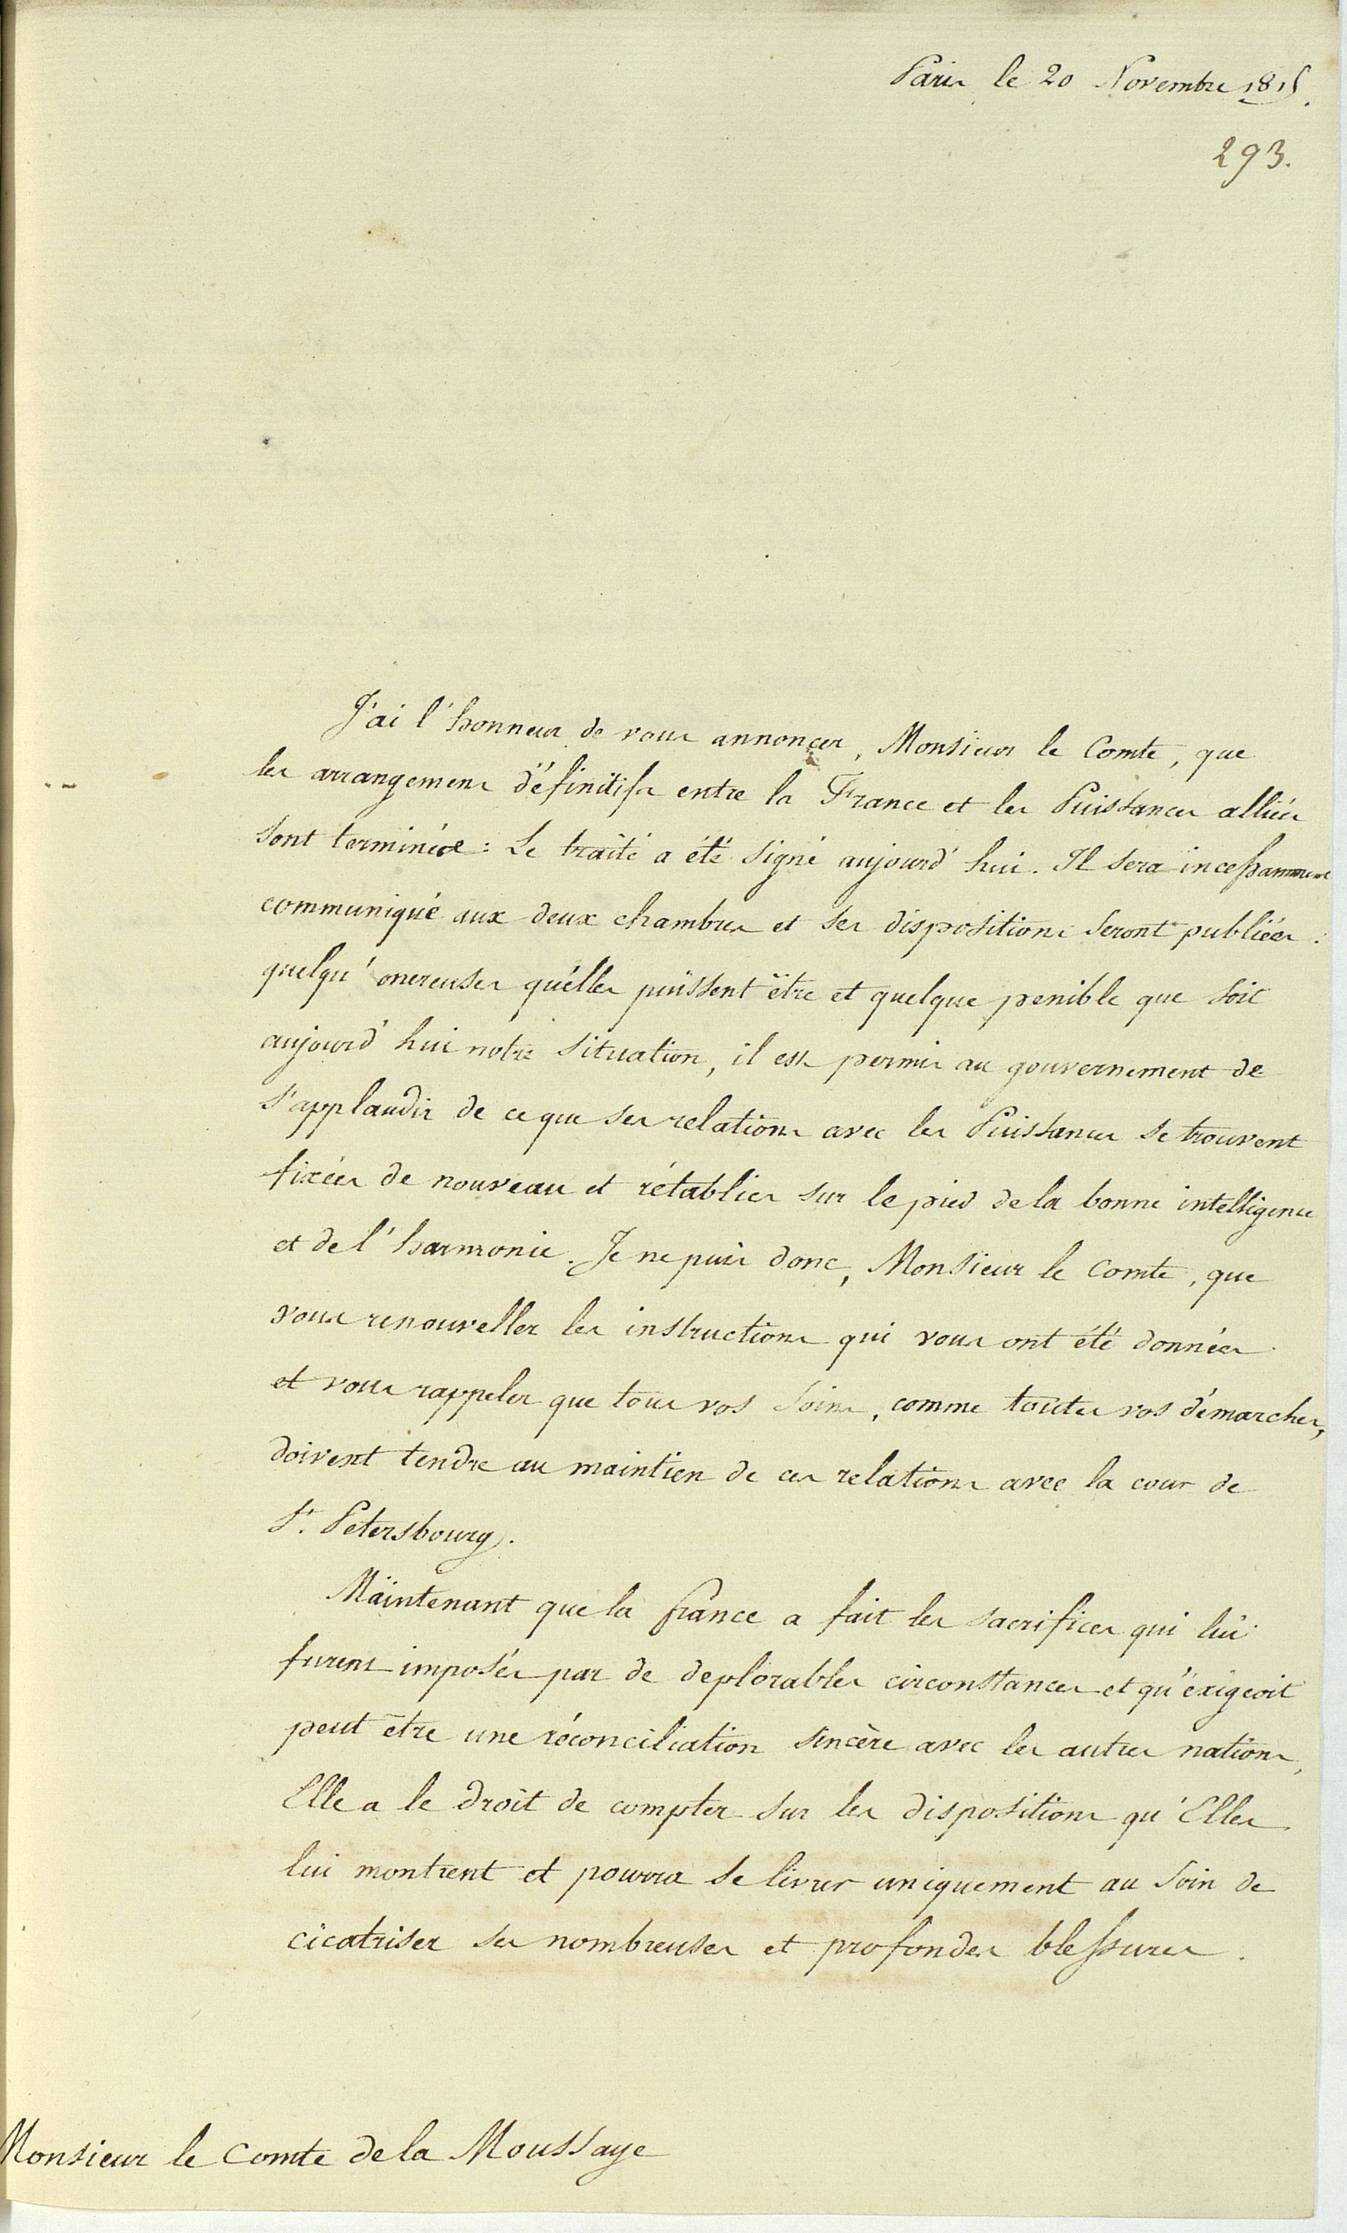 Paris le 20 Novembre 1815.
293.
J'ai l'honneur de vous annoncer, Monsieur le Comte, que
les arrangemens définitifs entre la France et les Puissances alliées
sont terminées : Le traité a été signé aujourd'hui. Il sera incessamment
communiqué aux deux chambres et ses dispositions seront publiées :
quelqu'onereuses qu'elles puissent être et quelque penible que soit
aujourd'hui notre situation, il est permis au gouvernement de
s'applaudir de ce que ses relations avec les Puissances se trouvent
fixées de nouveau et rétablies sur le pied de la bonne intelligence
et de l'harmonie. Je ne puis donc, Monsieur le Comte, que
vous renouveller les instructions qui vous ont été données
et vous rappeler que tous vos soins, comme toutes vos démarches,
doivent tendre au maintien de ces relations avec la cour de
St. Petersbourg.
Maintenant que la france a fait les sacrifices qui lui
furent imposés par de deplorables circonstances et qu'éxigeoit
peut être une réconciliation sincère avec les autres nations,
Elle a le droit de compter sur les dispositions qu'Elles
lui montrent et pourra se livrer uniquement au soin de
cicatriser ses nombreuses et profondes blessures.
Monsieur le Comte de la Moussaye